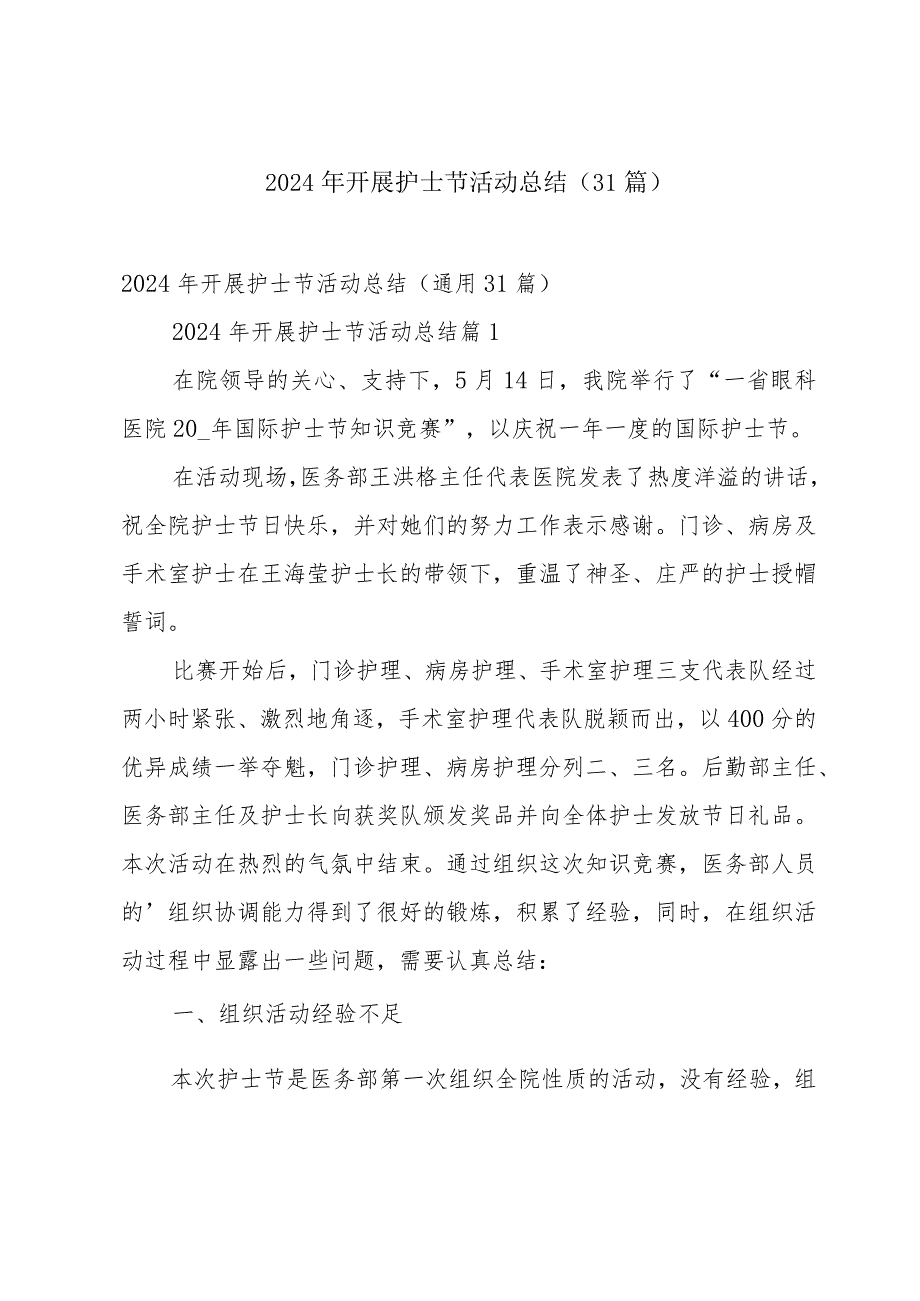 2024 年开展护士节活动总结（31 篇）
2024 年开展护士节活动总结（通用 31 篇）
2024 年开展护士节活动总结篇 1
在院领导的关心、支持下，5 月 14 日，我院举行了“一省眼科
医院 20_年国际护士节知识竞赛”，以庆祝一年一度的国际护士节。
在活动现场,医务部王洪格主任代表医院发表了热度洋溢的讲话，
祝全院护士节日快乐，并对她们的努力工作表示感谢。门诊、病房及
手术室护士在王海莹护士长的带领下，重温了神圣、庄严的护士授帽
誓词。
比赛开始后，门诊护理、病房护理、手术室护理三支代表队经过
两小时紧张、激烈地角逐，手术室护理代表队脱颖而出，以 400 分的
优异成绩一举夺魁，门诊护理、病房护理分列二、三名。后勤部主任、
医务部主任及护士长向获奖队颁发奖品并向全体护士发放节日礼品。
本次活动在热烈的气氛中结束。通过组织这次知识竞赛，医务部人员
的’组织协调能力得到了很好的锻炼，积累了经验，同时，在组织活
动过程中显露出一些问题，需要认真总结：
一、组织活动经验不足
本次护士节是医务部第一次组织全院性质的活动，没有经验，组